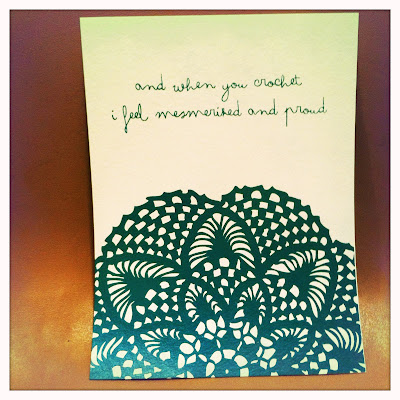 and when you crochet
i feel mesmerized and proud